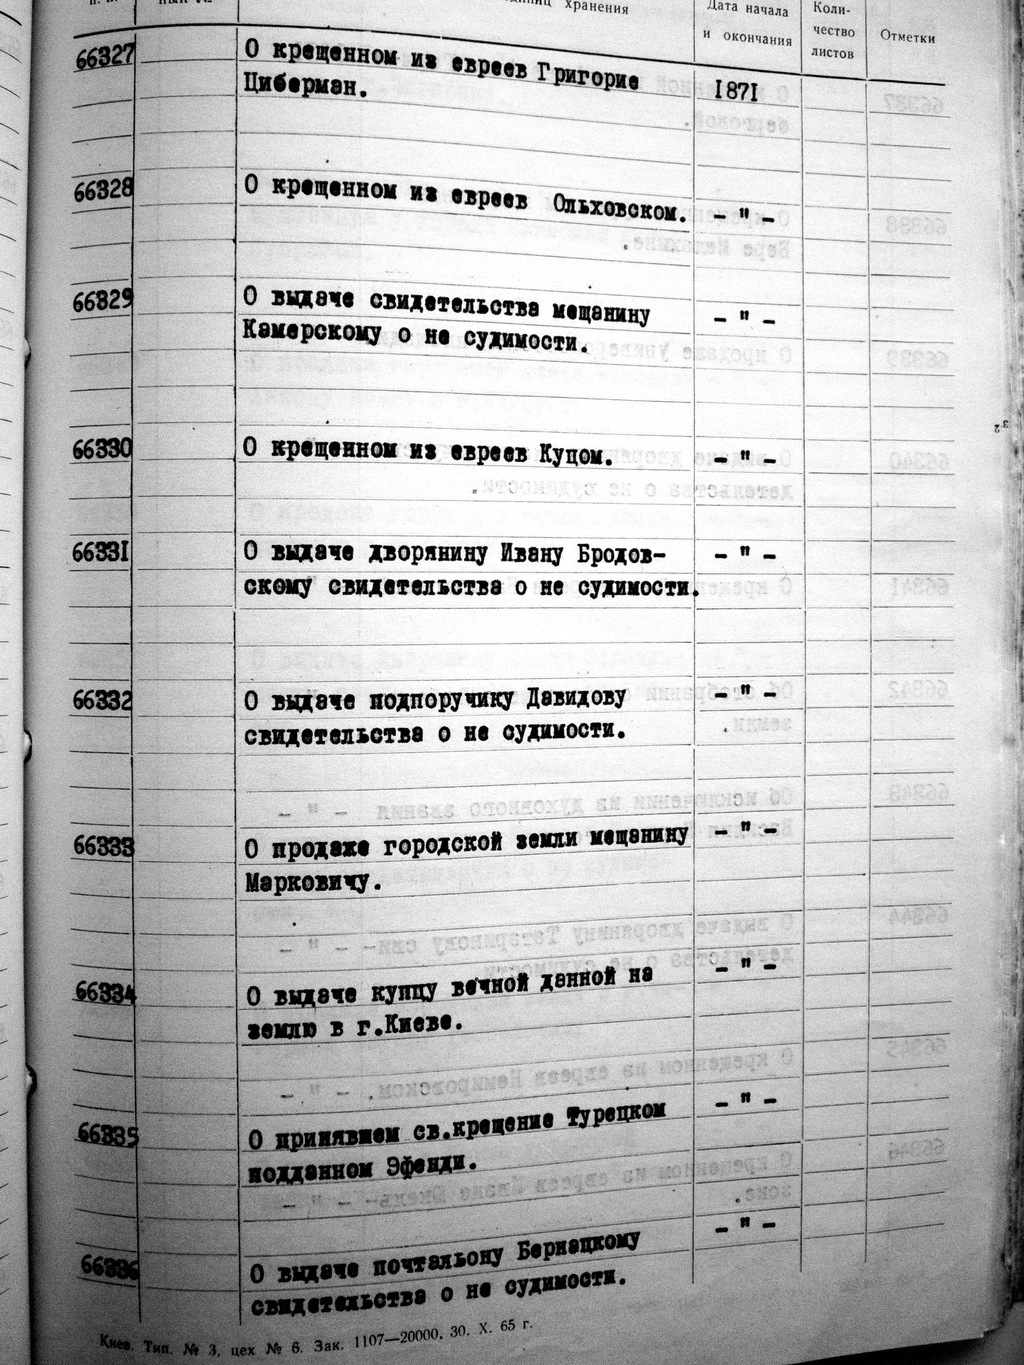 хранения
Дата начала
и окончания
Коли-
чество
листов
Отметки
66327
О крещенном из евреев Григорие
Циберман.
1871
66328
О крещенном из евреев Ольховском.
- " -
66329
О выдаче свидетельства мещанину
Камерскому о не судимости.
- " -
66330
О крещенном из евреев Куцом.
- " -
66331
О выдаче дворянину Ивану Бродов-
скому свидетельства о не судимости.
- " -
66332
О выдаче подпоручику Давидову
свидетельства о не судимости.
- " -
66333
О продаже городской земли мещанину
Марковичу.
- " -
66334
О выдаче купцу вечной данной на
землю в г.Киеве.
- " -
66335
О принявшем св.крещение Турецком
подданном Эфенди.
- " -
66336
О выдаче почтальону Бернацкому
свидетельства о не судимости.
- " -
Киев. Тип. № 3, цех № 6. Зак. 1107—20000. 30. X. 65 г.